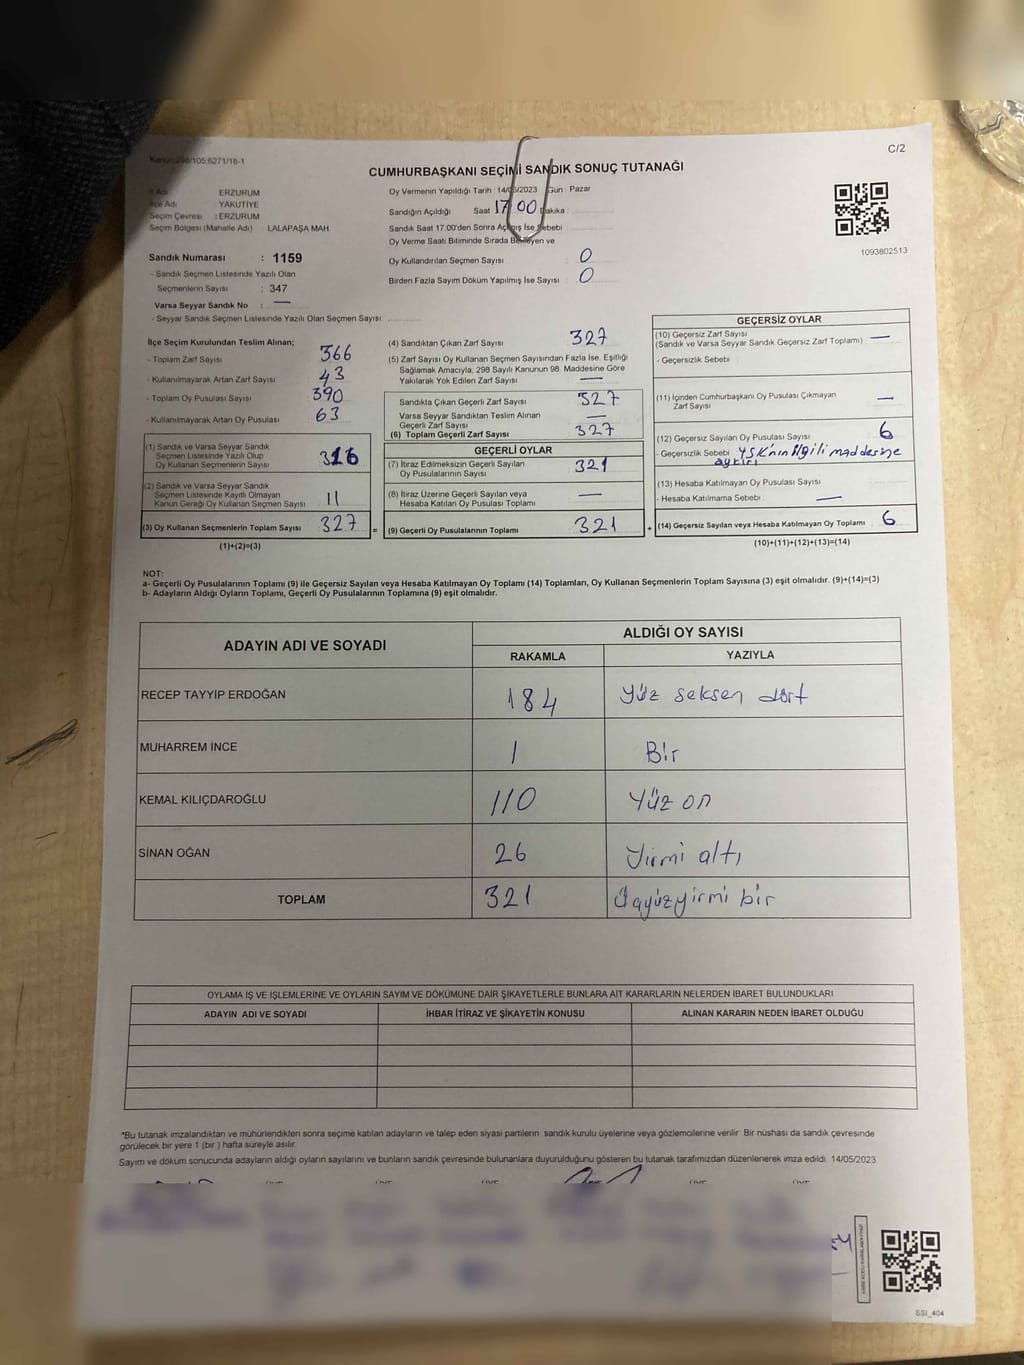 Kanun:298/105;6271/18-1
C/2
CUMHURBAŞKANI SEÇİMİ SANDIK SONUÇ TUTANAĞI
İl Adı ERZURUM
İlçe Adı YAKUTİYE
Seçim Çevresi : ERZURUM
Seçim Bölgesi (Mahalle Adı) LALAPAŞA MAH.
Oy Vermenin Yapıldığı Tarih 14/05/2023 Gün : Pazar
Sandığın Açıldığı Saat 17 00 Dakika
Sandık Saat 17.00'den Sonra Açılmış İse Sebebi
Oy Verme Saati Bitiminde Sırada Bekleyen ve
Oy Kullandırılan Seçmen Sayısı : 0
Birden Fazla Sayım Döküm Yapılmış İse Sayısı : 0
1093802513
Sandık Numarası : 1159
- Sandık Seçmen Listesinde Yazılı Olan
Seçmenlerin Sayısı : 347
Varsa Seyyar Sandık No : —
- Seyyar Sandık Seçmen Listesinde Yazılı Olan Seçmen Sayısı :
İlçe Seçim Kurulundan Teslim Alınan;
- Toplam Zarf Sayısı 366
- Kullanılmayarak Artan Zarf Sayısı : 43
- Toplam Oy Pusulası Sayısı : 390
- Kullanılmayarak Artan Oy Pusulası : 63
(1) Sandık ve Varsa Seyyar Sandık
Seçmen Listesinde Yazılı Olup
Oy Kullanan Seçmenlerin Sayısı 316
(2) Sandık ve Varsa Seyyar Sandık
Seçmen Listesinde Kayıtlı Olmayan
Kanun Gereği Oy Kullanan Seçmen Sayısı : 11
(3) Oy Kullanan Seçmenlerin Toplam Sayısı 327 =
(1)+(2)=(3)
(4) Sandıktan Çıkan Zarf Sayısı : 327
(5) Zarf Sayısı Oy Kullanan Seçmen Sayısından Fazla İse, Eşitliği
Sağlamak Amacıyla, 298 Sayılı Kanunun 98. Maddesine Göre
Yakılarak Yok Edilen Zarf Sayısı : —
Sandıkta Çıkan Geçerli Zarf Sayısı : 327
Varsa Seyyar Sandıktan Teslim Alınan
Geçerli Zarf Sayısı : —
(6) Toplam Geçerli Zarf Sayısı : 327
GEÇERLİ OYLAR
(7) İtiraz Edilmeksizin Geçerli Sayılan
Oy Pusulalarının Sayısı : 321
(8) İtiraz Üzerine Geçerli Sayılan veya
Hesaba Katılan Oy Pusulası Toplamı : —
(9) Geçerli Oy Pusulalarının Toplamı : 321 +
GEÇERSİZ OYLAR
(10) Geçersiz Zarf Sayısı
(Sandık ve Varsa Seyyar Sandık Geçersiz Zarf Toplamı) : —
- Geçersizlik Sebebi
(11) İçinden Cumhurbaşkanı Oy Pusulası Çıkmayan
Zarf Sayısı : —
(12) Geçersiz Sayılan Oy Pusulası Sayısı : 6
- Geçersizlik Sebebi YSK'nın ilgili maddesine
aykırı
(13) Hesaba Katılmayan Oy Pusulası Sayısı :
- Hesaba Katılmama Sebebi : —
(14) Geçersiz Sayılan veya Hesaba Katılmayan Oy Toplamı : 6
(10)+(11)+(12)+(13)=(14)
NOT:
a- Geçerli Oy Pusulalarının Toplamı (9) ile Geçersiz Sayılan veya Hesaba Katılmayan Oy Toplamı (14) Toplamları, Oy Kullanan Seçmenlerin Toplam Sayısına (3) eşit olmalıdır. (9)+(14)=(3)
b- Adayların Aldığı Oyların Toplamı, Geçerli Oy Pusulalarının Toplamına (9) eşit olmalıdır.
ADAYIN ADI VE SOYADI
ALDIĞI OY SAYISI
RAKAMLA YAZIYLA
RECEP TAYYİP ERDOĞAN 184 Yüz seksen dört
MUHARREM İNCE 1 Bir
KEMAL KILIÇDAROĞLU 110 Yüz on
SİNAN OĞAN 26 Yirmi altı
TOPLAM 321 Üçyüzyirmi bir
OYLAMA İŞ VE İŞLEMLERİNE VE OYLARIN SAYIM VE DÖKÜMÜNE DAİR ŞİKAYETLERLE BUNLARA AİT KARARLARIN NELERDEN İBARET BULUNDUKLARI
ADAYIN ADI VE SOYADI İHBAR İTİRAZ VE ŞİKAYETİN KONUSU ALINAN KARARIN NEDEN İBARET OLDUĞU
*Bu tutanak imzalandıktan ve mühürlendikten sonra seçime katılan adayların ve talep eden siyasi partilerin sandık kurulu üyelerine veya gözlemcilerine verilir. Bir nüshası da sandık çevresinde
görülecek bir yere 1 (bir) hafta süreyle asılır.
Sayım ve döküm sonucunda adayların aldığı oyların sayılarını ve bunların sandık çevresinde bulunanlara duyurulduğunu gösteren bu tutanak tarafımızdan düzenlenerek imza edildi. 14/05/2023
SSİ_404